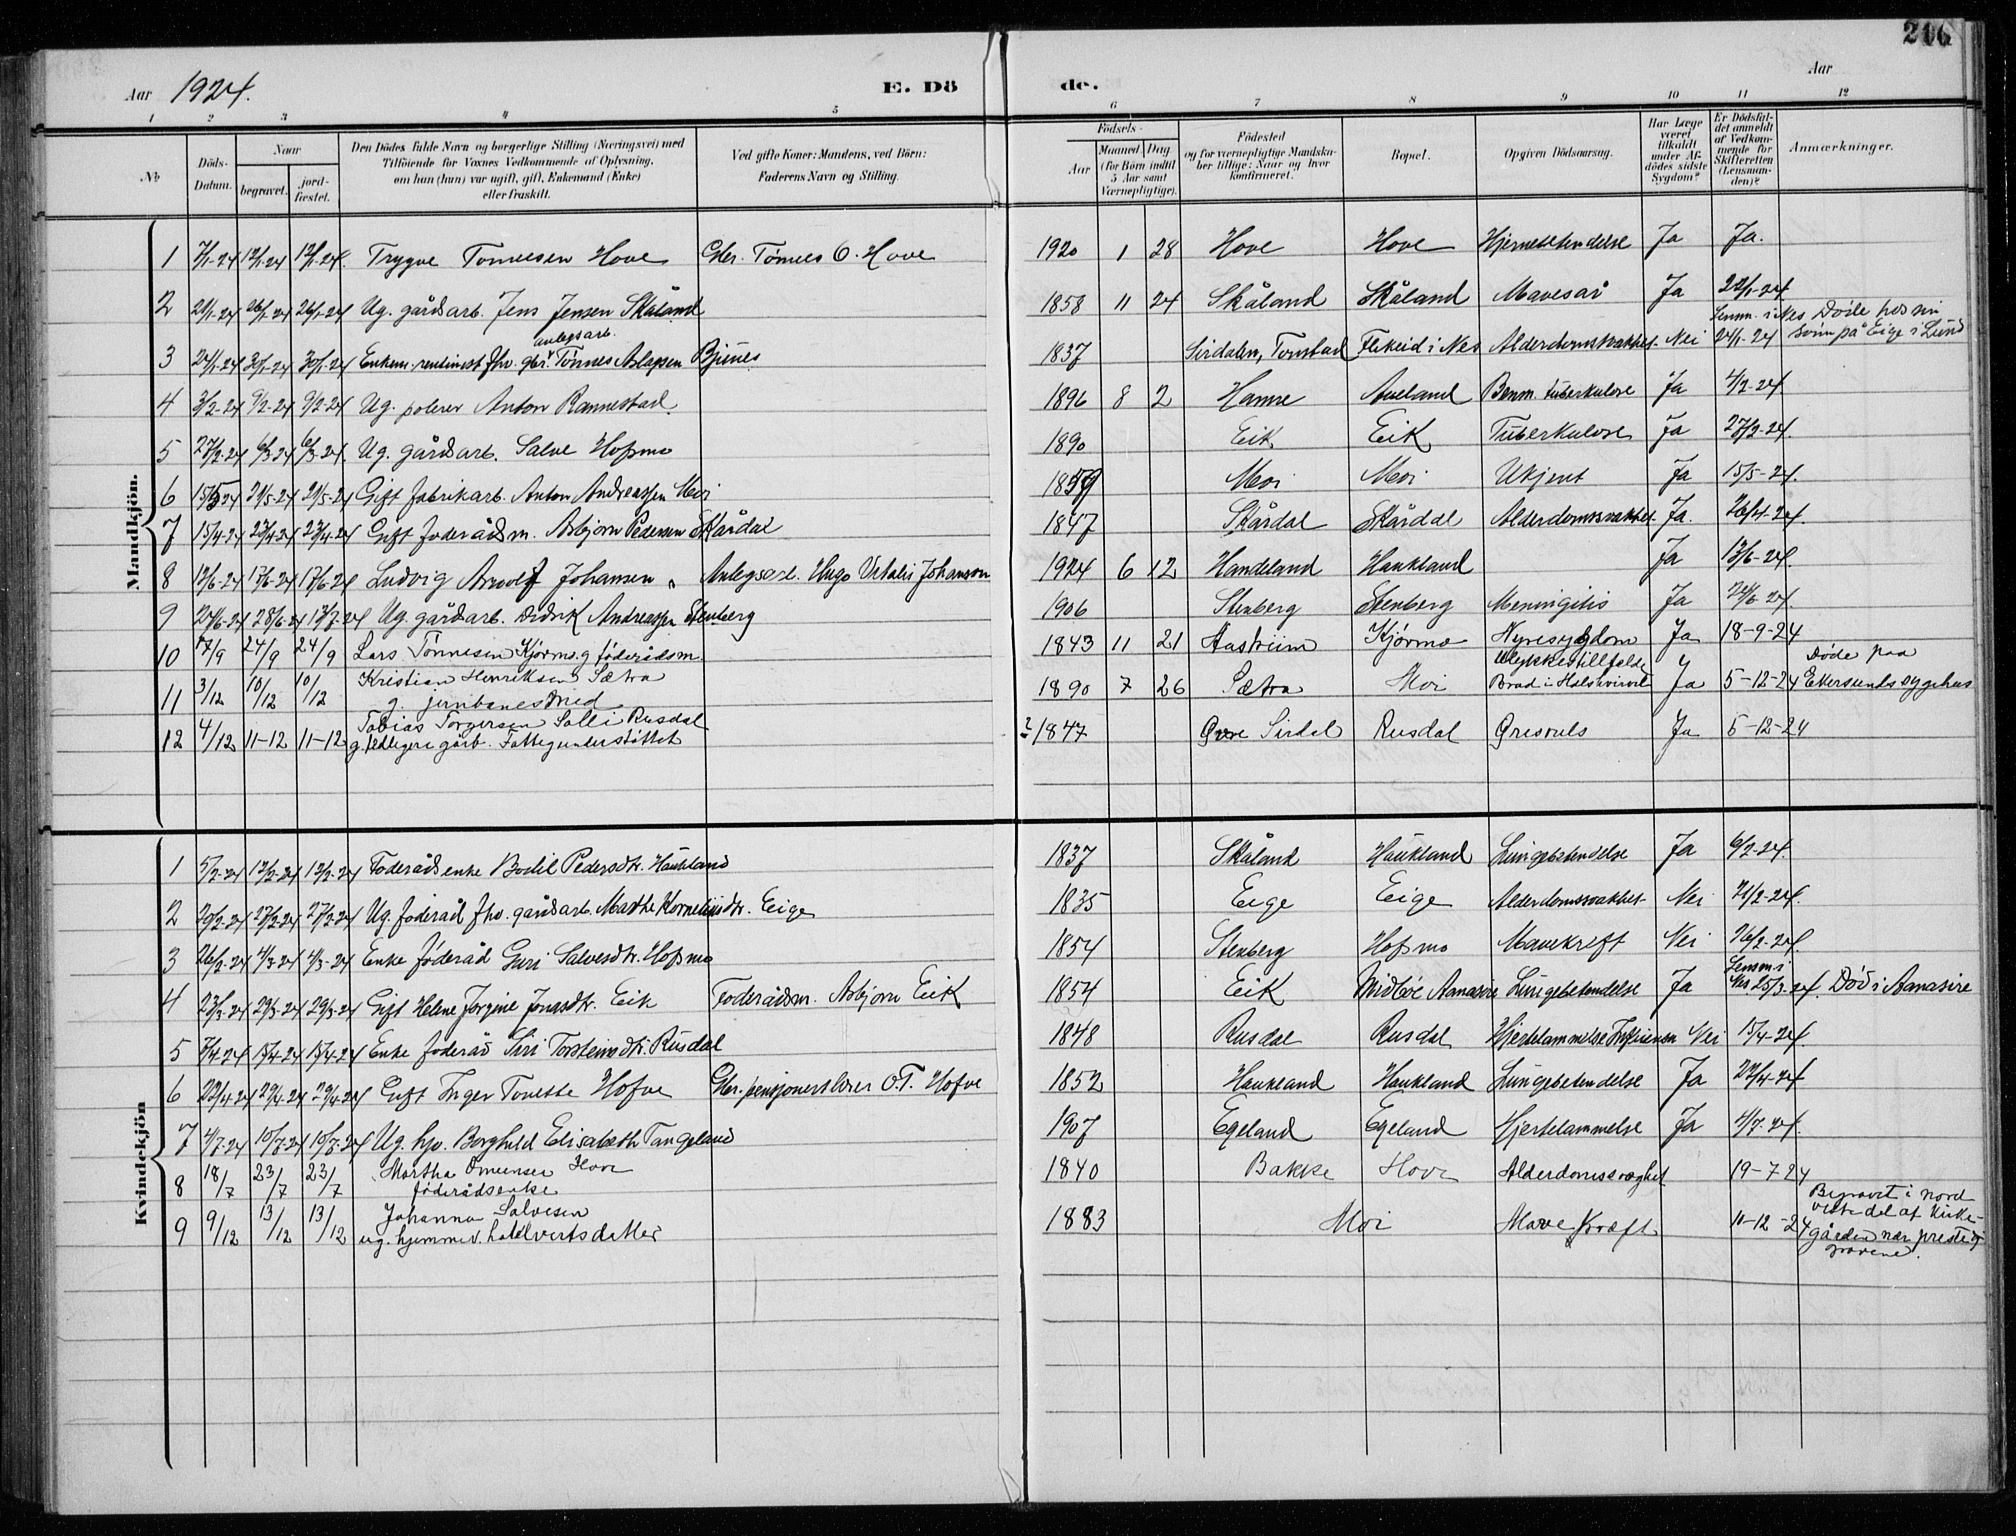 206
Aar 1924.
E. Dö
de.
Aar
1 2 3 4 5 6 7 8 9 10 11 12
№
Döds-Datum.
Naar
begravet.
jord-fæstet.
Den Dödes fulde Navn og borgerlige Stilling (Næringsvei) med
Tilföiende for Voxnes Vedkommende af Oplysning,
om han (hun) var ugift, gift, Enkemand (Enke)
eller fraskilt.
Ved gifte Koner: Mandens, ved Börn:
Faderens Navn og Stilling.
Födsels-
Aar
Maaned. Dag.
(for Börn indtil
5 Aar samt
Værnepligtige).
Födested
og for værnepligtige Mandska-
ber tillige: Naar og hvor
konfirmeret.
Bopæl.
Opgiven Dödsaarsag.
Har Læge
været
tilkaldt
under Af-
dödes sidste
Sygdom?
Er Dödsfal-
det anmeldt
af Vedkom-
mende for
Skifteretten
(Lensman-
den)?
Anmærkninger.
Mandkjön.
1 7/1-24 12/1-24 12/1-24. Trygve Tonnesen Hove Gbr. Tönnes O. Hove 1920 1 28 Hove Hove Hjernebetendelse Ja Ja.
2 21/1-24 26/1-24 26/1-24 Ug. gårdsarb. Jens Jensen Skåland 1858 11 24 Skåland Skåland Mavesår Ja 22/1-24
anlegsarb. Lensm. i Nes Döde hos sin
3 24/1-24 30/1-24 30/1-24 Enkem. rentenist fhv. gbr. Tönnes Aslaksen Bjunes 1837 Sirdalen, Tonstad Flikeid i Nes Alderdomssvakhet Nei 24/1-24 sönn på Eige i Lund
4 3/2-24 9/2-24 9/2-24 Ug. polerer Anton Rannestad 1896 8 2 Hamre Aueland Benm. tuberkulose Ja 4/2-24.
5 27/2-24 6/3-24 6/3-24. Ug. gårdsarb. Salve Hofsmo 1890 Eik Eik Tuberkulose Ja 27/2-24.
6 15/5-24 21/5-24 21/5-24 Gift fabrikarb. Anton Andreassen Moi 1859 Moi Moi Ukjent Ja 15/5-24.
7 15/4-24 23/4-24 23/4-24 Gift foderådsm. Asbjorn Pedersen Skårdal 1847 Skårdal Skårdal Alderdomssvakhet Ja. 16/4-24.
8 12/6-24 17/6-24 17/6-24 Ludvig Arnolf Johansen Anlegsarb. Hugo Vitalis Johanson 1924 6 12 Handeland Haukland Ja 13/6-24.
9 24/6-24 28/6-24 13/7-24 Ug. gårdsarb. Didrik Andreassen Stenberg 1906 Stenberg Stenberg Meningitis Ja 24/6-24.
10 17/9 24/9 24/9 Lars Tönnesen Kjörmo g föderådsm. 1843 11 21 Aastveim Kjörmo Nyresygdom Ja 18-9-24
Kristian Henriksen Sætra Ulykkestillfelde Döde paa
11 3/12 10/12 10/12 g. jernbanesmed 1890 7 26 Sætra Moi Brud i Halshvirvel Ja 5-12-24 Ekersunds sygehus
Tobias Torgersen Solli Rusdal
12 4/12 11-12 11-12 g. tidligere gårb. Fattigunderstöttet ? 1847 Övre Sirdal Rusdal Ja 5-12-24
Kvindekjön
1 5/2-24 12/2-24 12/2-24 Foderådsenke Bodil Pedersdtr. Haukland 1837 Skåland Haukland Lungebetendelse Ja 6/2-24.
2 20/2-24 27/2-24 27/2-24 Ug. foderåd fhv. gårdsarb. Marthe Korneliusdtr. Eige 1835 Eige Eige Alderdomssvakhet Nei 21/2-24.
3 26/2-24 4/3-24 4/3-24 Enke föderåd Guri Salvesdtr. Hofsmo 1854 Stenberg Hofsmo Mavekreft Nei 26/2-24
Lensm. i
4 23/3-24 29/3-24 29/3-24 Gift Helene Jorgine Jonasdtr. Eik Foderådsm. Asbjorn Eik 1854 Eik Midlöe Aanasire Lungebetendelse Ja Nes 25/3-24. Död i Aanasire
5 7/4-24 15/4-24 15/4-24 Enke foderåd Siri Torsteinsdtr. Rusdal 1848 Rusdal Rusdal Hjertelammelse Influensa Nei 15/4-24
6 22/4-24 29/4-24 29/4-24 Gift Inger Tonette Hofve Gbr. pensjonert lærer O.T. Hofve 1852 Haukland Haukland Lungebetendelse Ja 22/4-24.
7 4/7-24 10/7-24 10/7-24 Ug. hjv. Borghild Elisabeth Tangeland 1907 Egeland Egeland Hjertelammelse Ja 4/7-24.
8 18/7 23/7 23/7 Martha Omensen Hove 1840 Bakke Hove Alderdomssvaghet 19-7-24
föderådsenke
Johanna Salvesen Begravet i nord
vestre del af kirke-
9 9/12 13/12 13/12 ug. hjemmev. hotelvertsdatter 1883 Moi Mave Kræft 11-12-24 gården nær preste
gravene.